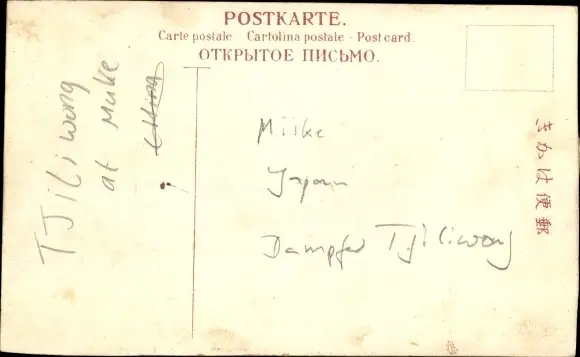 POSTKARTE.
Carte postale - Cartolina postale - Post card.
ОТКРЫТОЕ ПИСЬМО.
Tjiliwong
at Muke
China
Miike
Japan
Dampfer Tjiliwong
郵便はがき